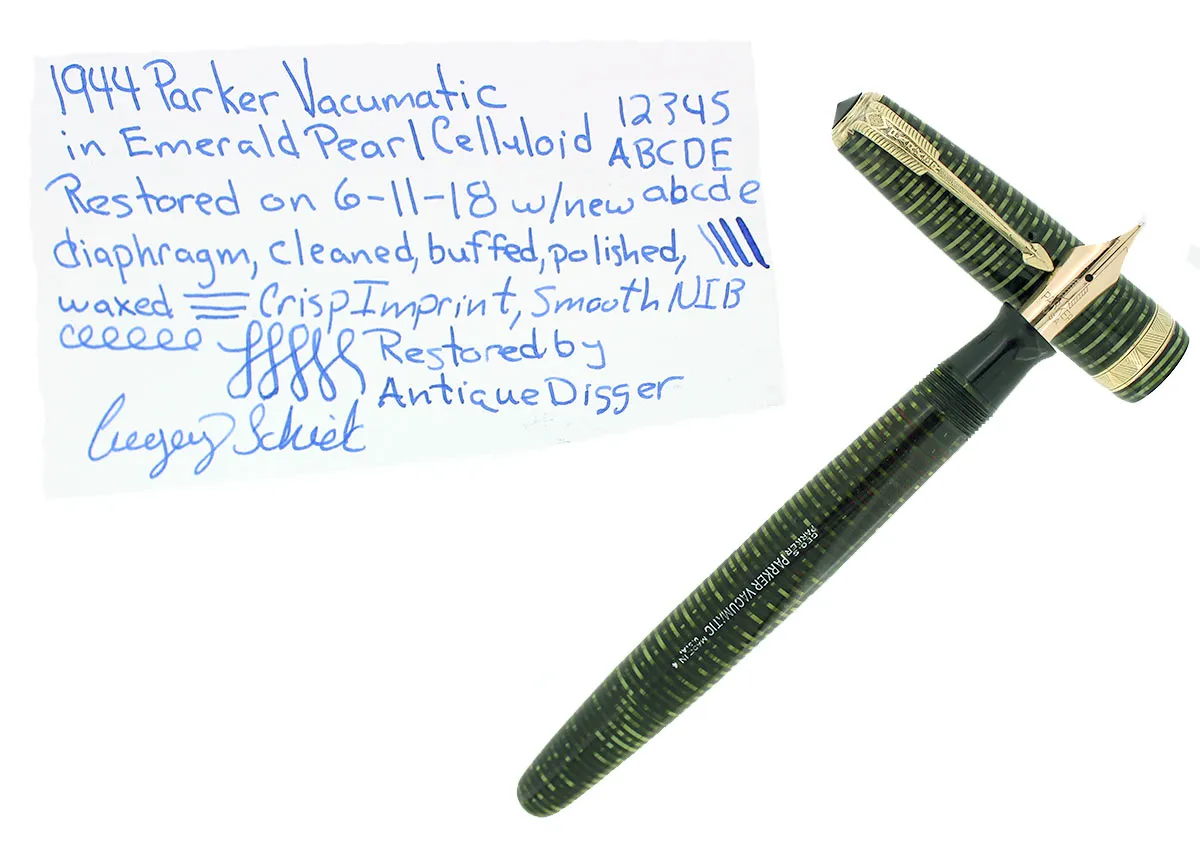 1944 Parker Vacumatic
in Emerald Pearl Celluloid 12345
ABCDE
Restored on 6-11-18 w/new abcde
diaphragm, cleaned, buffed, polished,
waxed Crisp Imprint, Smooth NIB
Restored by
Antique Digger
GEO. S.
PARKER PARKER VACUMATIC
MADE IN
U.S.A. 4